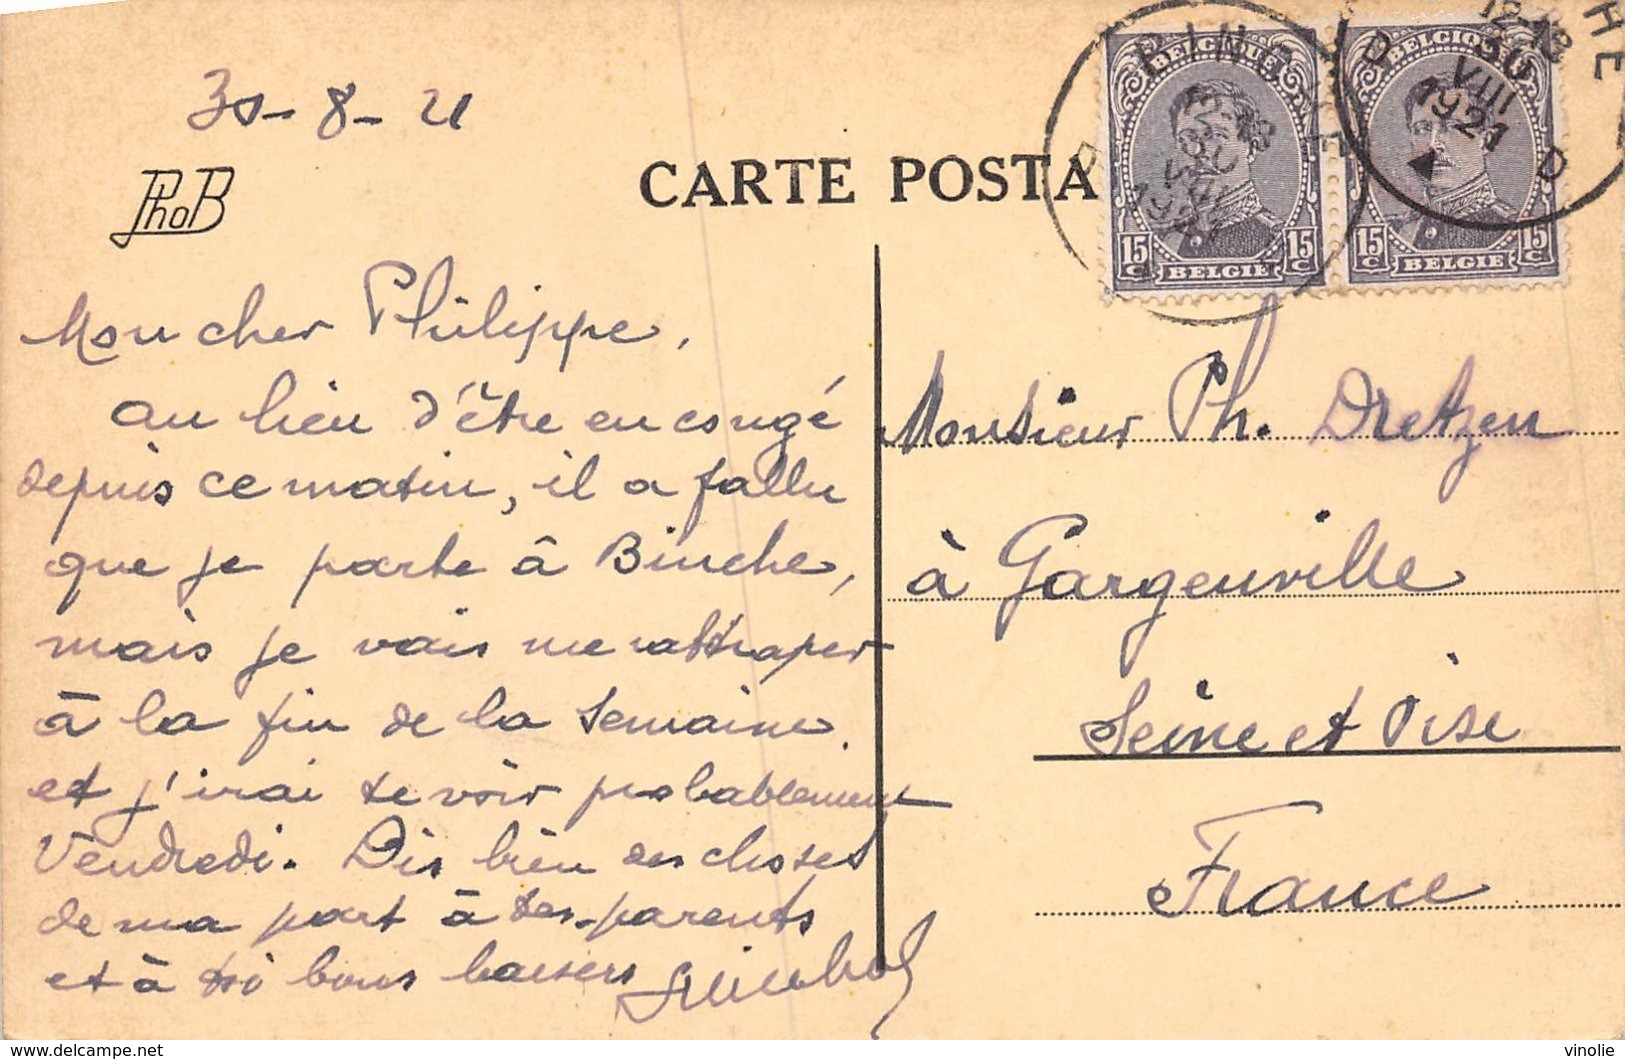 30-8-21
PhoB
CARTE POSTA
BINCHE
D D
12-18
30
VIII
1921
BELGIQUE
15 C 15 C
BELGIE
BELGIQUE
15 C 15 C
BELGIE
Mon cher Philippe,
au lieu d'être en congé
depuis ce matin, il a fallu
que je parte à Binche,
mais je vais me rattraper
à la fin de la semaine.
et j'irai te voir probablement
Vendredi. Dis bien des choses
de ma part à tes parents
et à toi bons baisers
Monsieur Ph. Dretzen
à Gargenville
Seine et Oise
France
delcampe.net
vinolie